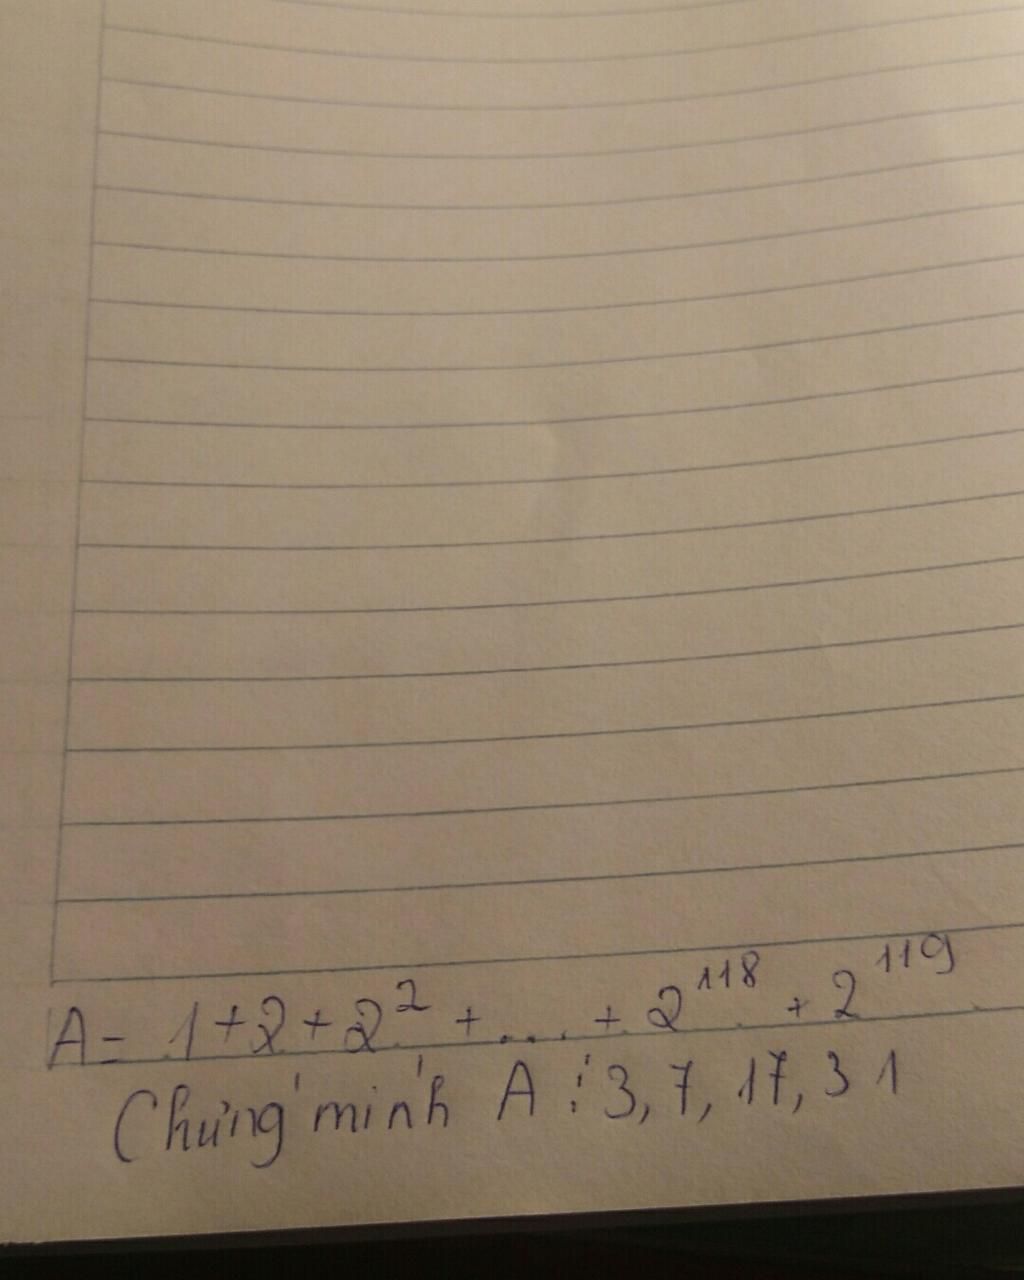 A = 1+2+2² + .... + 2¹¹⁸ + 2¹¹⁹
Chứng minh A ⋮ 3, 7, 17, 31